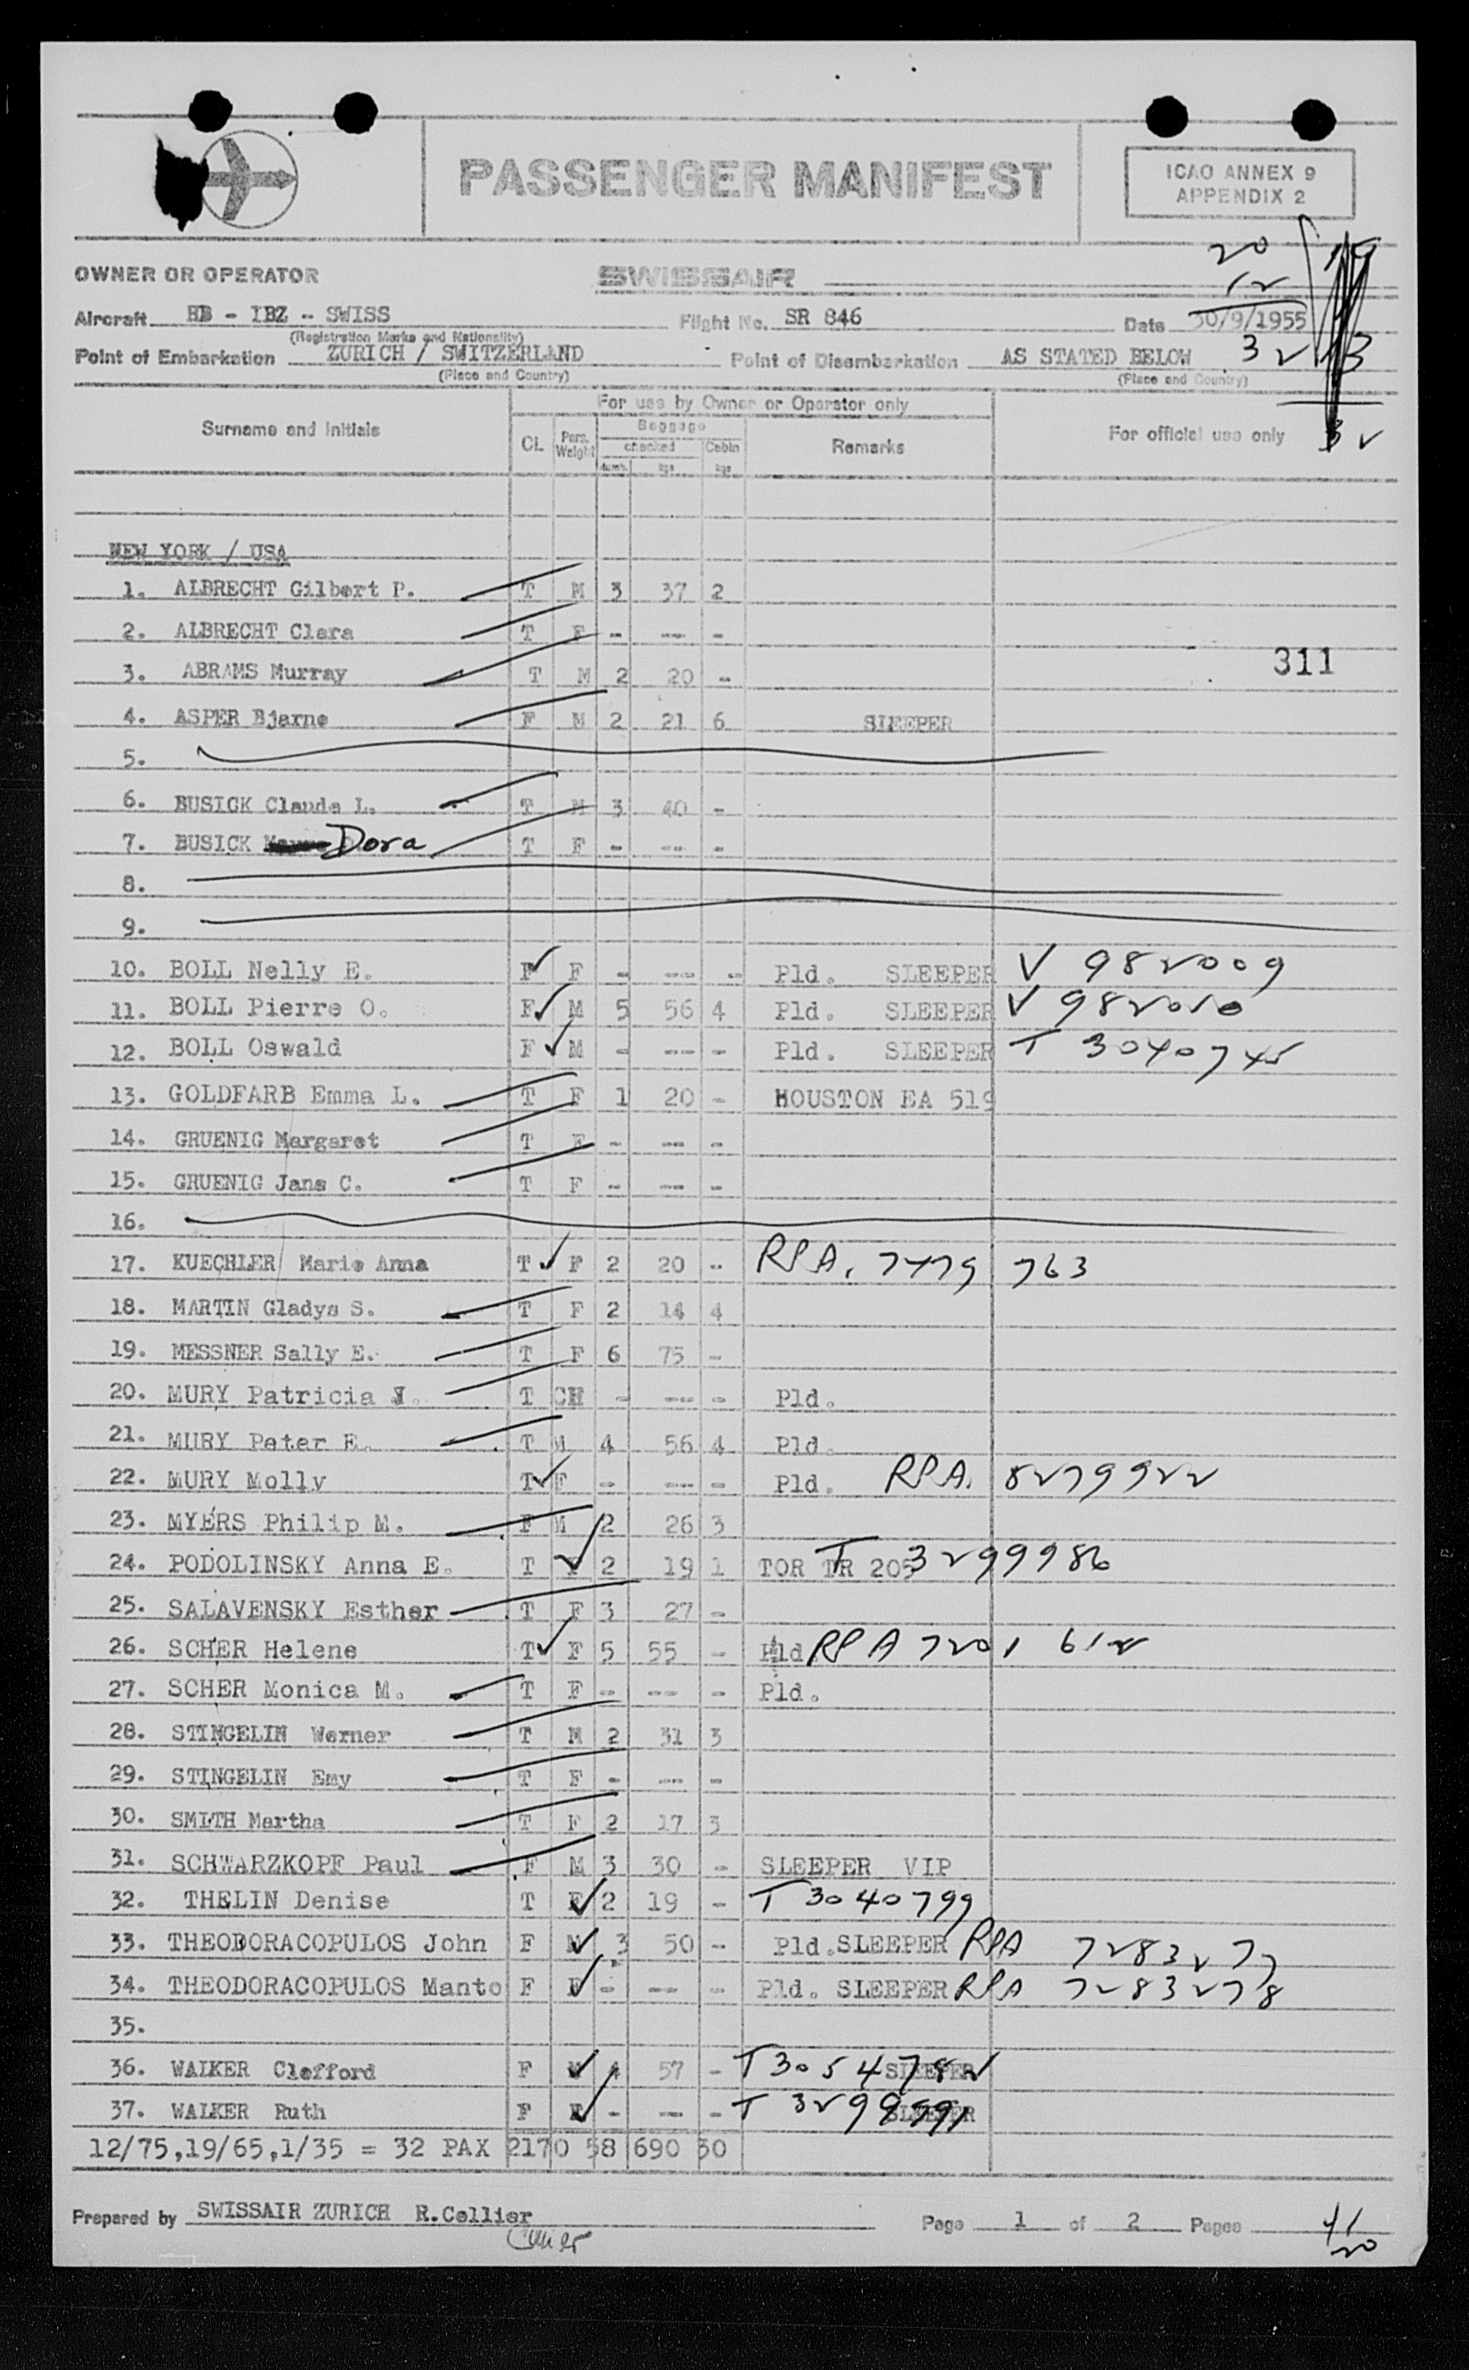 PASSENGER MANIFEST
ICAO ANNEX 9
APPENDIX 2
20
12
OWNER OR OPERATOR SWISSAIR
Aircraft HB - IBZ - SWISS Flight No. SR 846 Date 30/9/1955
(Registration Marks and Nationality)
32
Point of Embarkation ZURICH / SWITZERLAND Point of Disembarkation AS STATED BELOW
(Place and Country) (Place and Country)
For use by Owner or Operator only
Surname and Initials Cl. Pers. Weight Baggage checked numb. kgs Cabin kgs Remarks For official use only
NEW YORK / USA
1. ALBRECHT Gilbert P. T M 3 37 2
2. ALBRECHT Clara T F - --- -
3. ABRAMS Murray T M 2 20 -
311
4. ASPER Bjarne F M 2 21 6 SLEEPER
5.
6. BUSICK Claude L. T M 3 40 -
7. BUSICK Dora T F - --- -
8.
9.
10. BOLL Nelly E. F F - --- - Pld. SLEEPER V 982009
11. BOLL Pierre O. F M 5 56 4 Pld. SLEEPER V 982010
12. BOLL Oswald F M - --- - Pld. SLEEPER T 3040745
13. GOLDFARB Emma L. T F 1 20 - HOUSTON EA 519
14. GRUENIG Margaret T F - --- -
15. GRUENIG Jane C. T F - --- -
16.
17. KUECHLER Marie Anna T F 2 20 - RPA. 7479 763
18. MARTIN Gladys S. T F 2 14 4
19. MESSNER Sally E. T F 6 75 -
20. MURY Patricia J. T CH - --- - Pld.
21. MURY Peter E. T M 4 56 4 Pld.
22. MURY Molly T F - --- - Pld. RPA. 8279922
23. MYERS Philip M. F M 2 26 3
24. PODOLINSKY Anna E. T F 2 19 1 TOR TR 205 T 3299986
25. SALAVENSKY Esther T F 3 27 -
26. SCHER Helene T F 5 55 - Pld RPA 7201 612
27. SCHER Monica M. T F - --- - Pld.
28. STINGELIN Werner T M 2 31 3
29. STINGELIN Emy T F - --- -
30. SMITH Martha T F 2 17 3
31. SCHWARZKOPF Paul F M 3 30 - SLEEPER VIP
32. THELIN Denise T F 2 19 - T 3040799
33. THEODORACOPULOS John F M 3 50 - Pld. SLEEPER RPA 7283277
34. THEODORACOPULOS Manto F F - --- - Pld. SLEEPER RPA 7283278
35.
36. WALKER Clefford F M 4 57 - T 3054782 SLEEPER
37. WALKER Ruth F F - --- - T 3299991 SLEEPER
12/75,19/65,1/35 = 32 PAX 2170 58 690 30
Prepared by SWISSAIR ZURICH R.Cellier Page 1 of 2 Pages